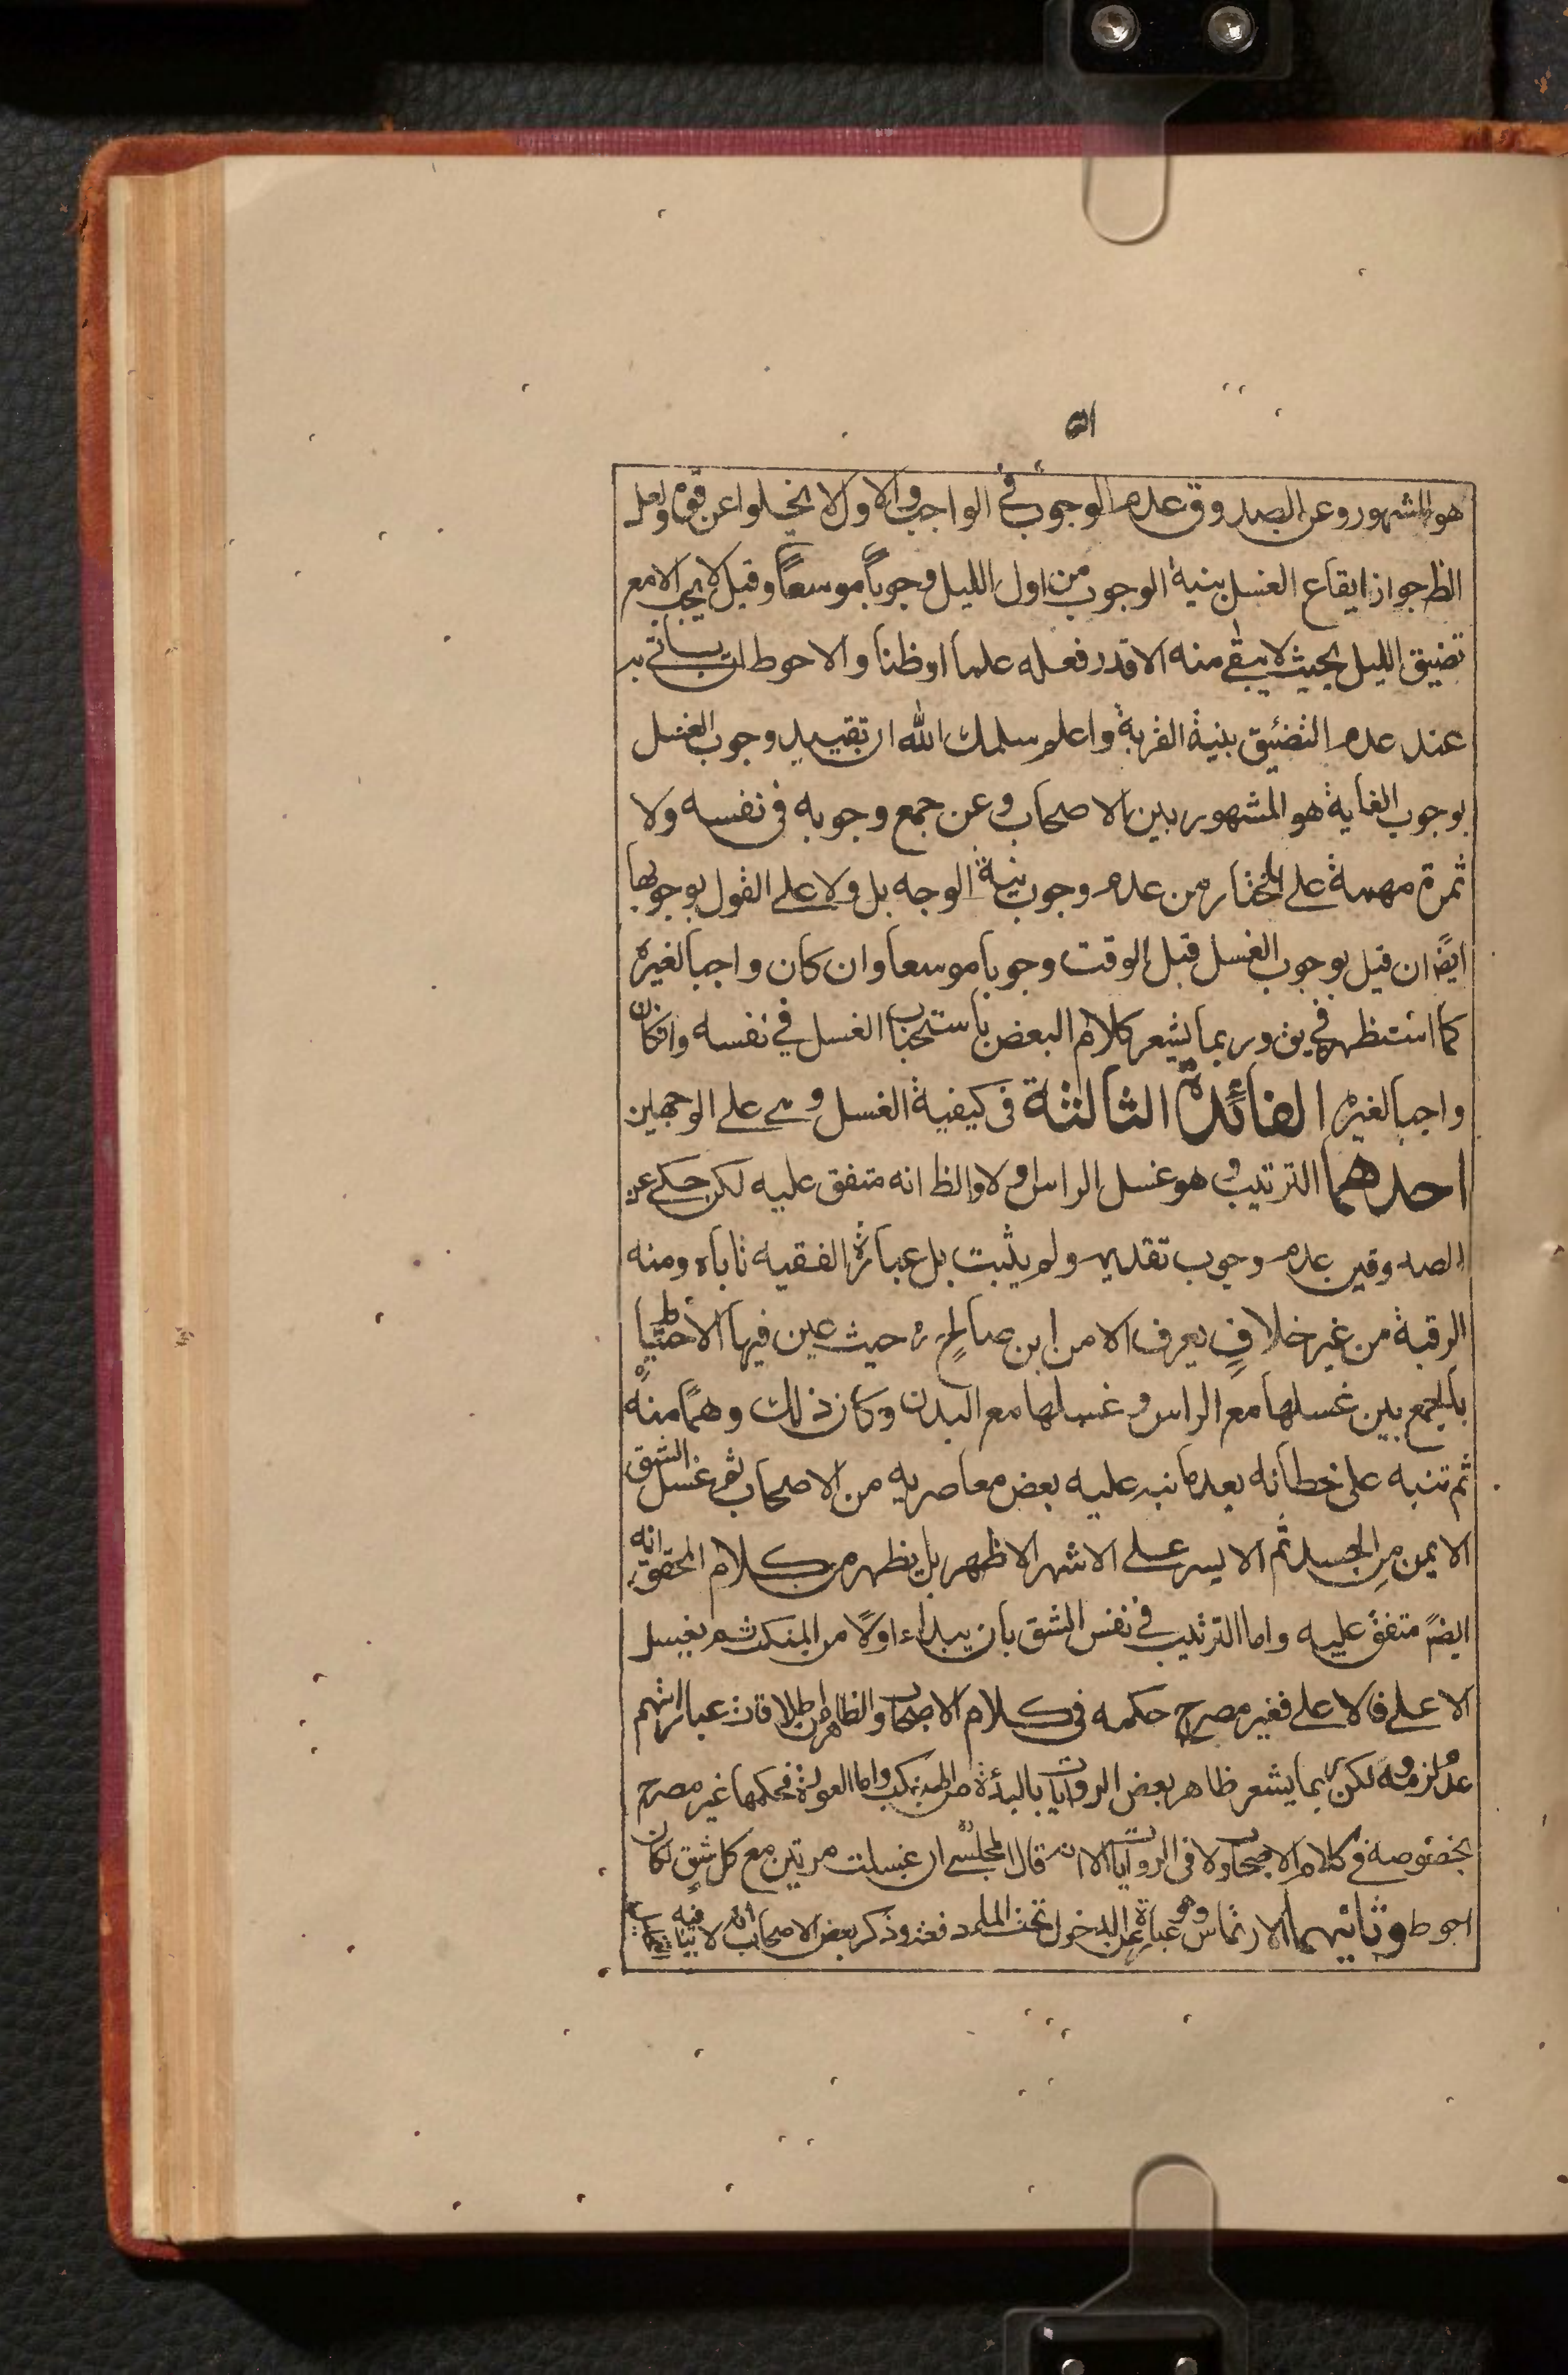 ٥١
هو المشهور وعن الصدوق عدم الوجوب في الواجب والاول لا يخلوا عن قوة ولعل
الظ جواز ايقاع الغسل بنية الوجوب من اول الليل وجوباً موسعاً وقيل لا يجب الا مع
تضيق الليل بحيث لا يبقى منه الا قدر فعله علما او ظنا والاحوط ان ياتي به
عند عدم التضيق بنية القربة واعلم سلمك الله ان تقييد وجوب الغسل
بوجوب الغاية هو المشهور بين الاصحاب وعن جمع وجوبه في نفسه ولا
ثمرة مهمة على المختار من عدم وجوب نية الوجه بل ولا على القول بوجوبها
ايضً ان قيل بوجوب الغسل قبل الوقت وجوبا موسعا وان كان واجبا لغيره
كما استظهر في يق وربما يشعر كلام البعض باستحباب الغسل في نفسه وان كان
واجبا لغيره الفائدة الثالثة في كيفية الغسل وهي على الوجهين
احدهما الترتيب وهو غسل الراس اولا والظ انه متفق عليه لكن حكي عن
الصدوقين عدم وجوب تقديمه ولم يثبت بل عبارة الفقيه تاباه ومنه
الرقبة من غير خلافٍ يعرف الا من ابن صالح ره حيث عين فيها الاحتياط
بالجمع بين غسلها مع الراس وغسلها مع البدن وكان ذلك وهماً منه
ثم تنبه على خطائه بعد ما نبه عليه بعض معاصريه من الاصحاب ثم غسل الشق
الايمن من الجسد ثم الايسر على الاشهر الاظهر بل يظهر من كلام المحقق انه
ايضً متفق عليه واما الترتيب في نفس الشق بان يبداء اولاً من المنكب ثم يغسل
الاعلى فالاعلى فغير مصرح حكمه في كلام الاصحاب والظاهر من اطلاقات عباراتهم
عدم لزومه لكن ربما يشعر ظاهر بعض الروايات بالبدئة من المنكب واما العورة فحكمها غير مصرح
بخصوصه في كلام الاصحاب ولا في الروايات الا انه قال المجلسي ان غسلت مرتين مع كل شق لكان
احوط وثانيهما الارتماس وهو عبارة عن الدخول تحت الماء دفعة وذكر بعض الاصحاب انه لا فيه